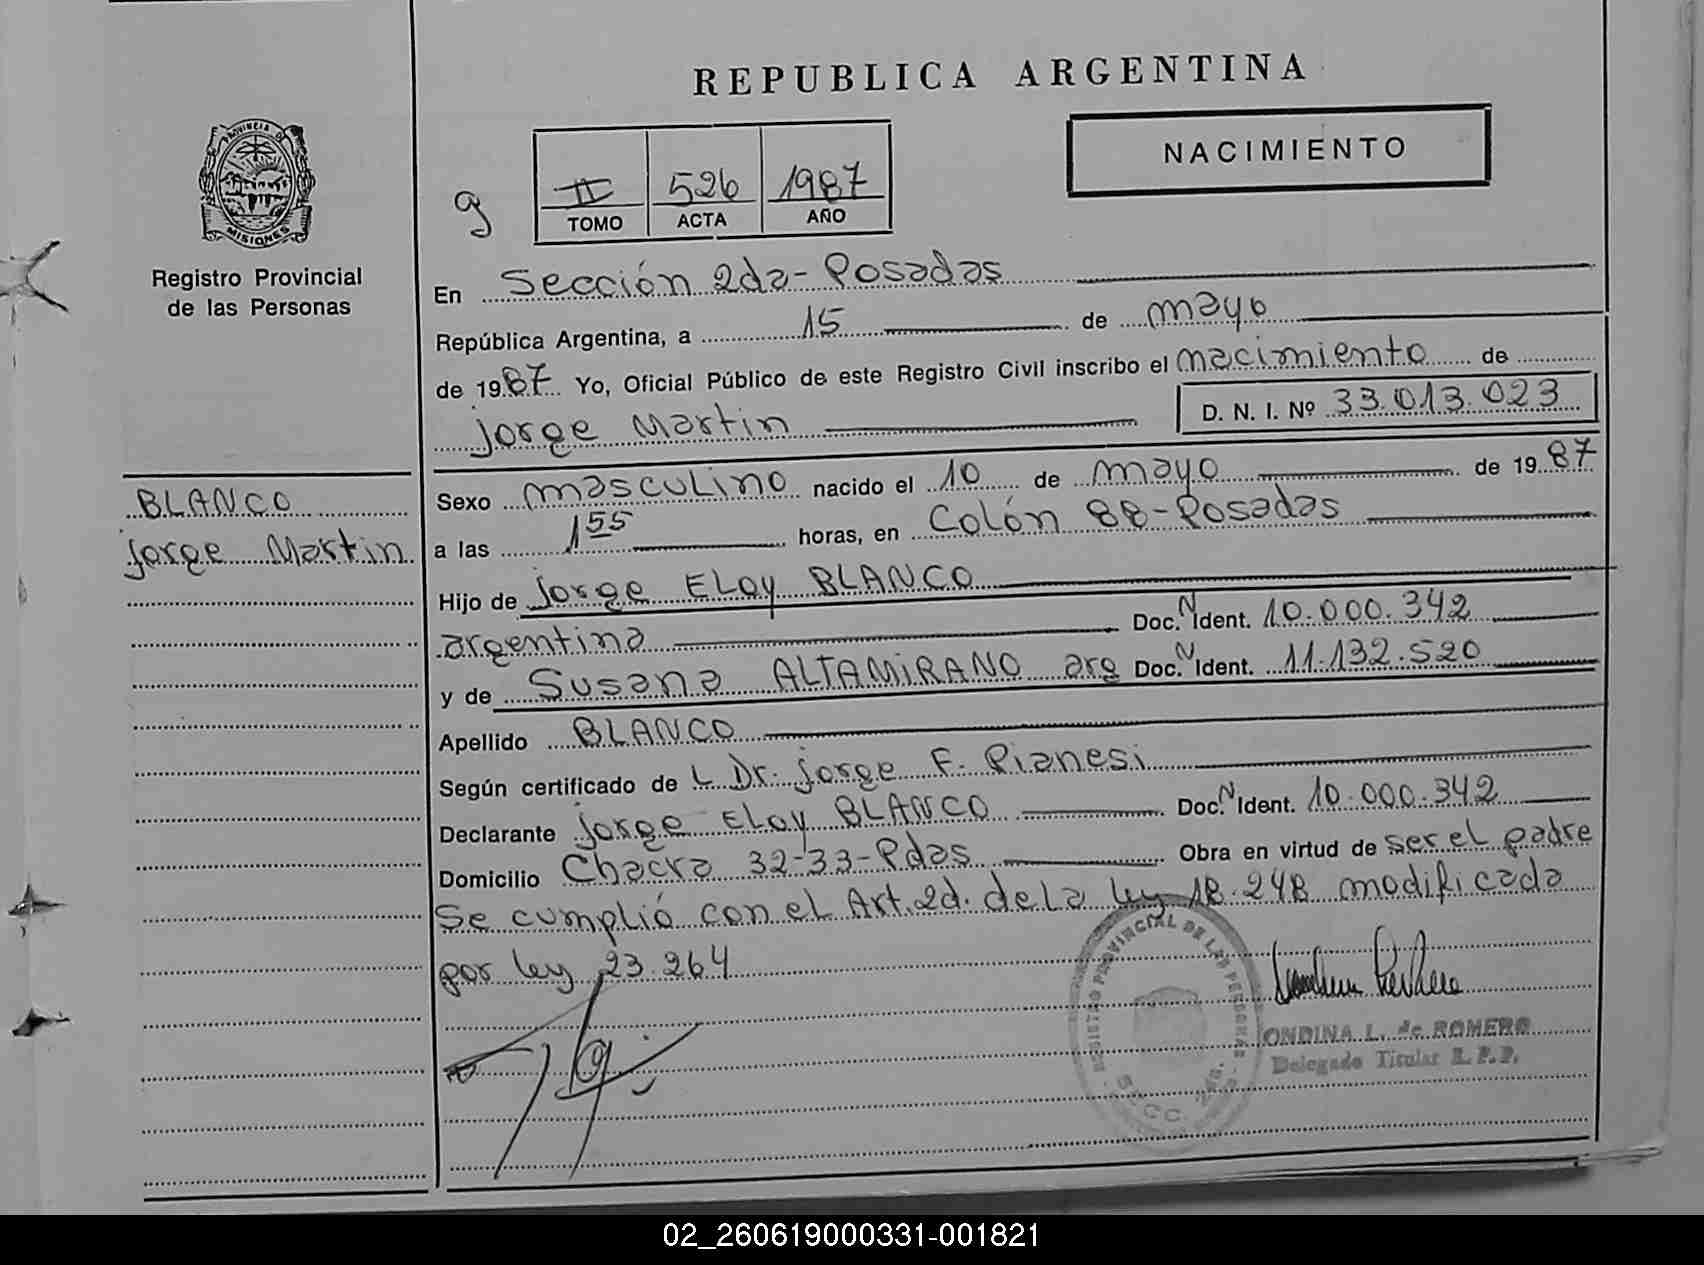 REPUBLICA ARGENTINA
NACIMIENTO
PROVINCIA DE
MISIONES
Registro Provincial
de las Personas
g
II 526 1987
TOMO ACTA AÑO
En Sección 2da - Posadas
República Argentina, a 15 de mayo
de 1987 Yo, Oficial Público de este Registro Civil inscribo el nacimiento de
Jorge Martin D. N. I. Nº 33.013.023
BLANCO
Jorge Martin
Sexo masculino nacido el 10 de mayo de 1987
a las 1 55 horas, en Colón 88 - Posadas
Hijo de Jorge Eloy BLANCO
argentina Doc. N Ident. 10.000.342
y de Susana ALTAMIRANO arg Doc. N Ident. 11.132.520
Apellido BLANCO
Según certificado de L Dr. Jorge F. Pianesi
Declarante Jorge Eloy BLANCO Doc. N Ident. 10.000.342
Domicilio Chacra 32-33-Pdas Obra en virtud de ser el padre
Se cumplió con el Art. 2d. de la ley 18.248 modificada
por ley 23.264
REGISTRO PROVINCIAL DE LAS PERSONAS
SECC.
ONDINA L. de ROMERO
Delegado Titular R. P. P.
02_260619000331-001821